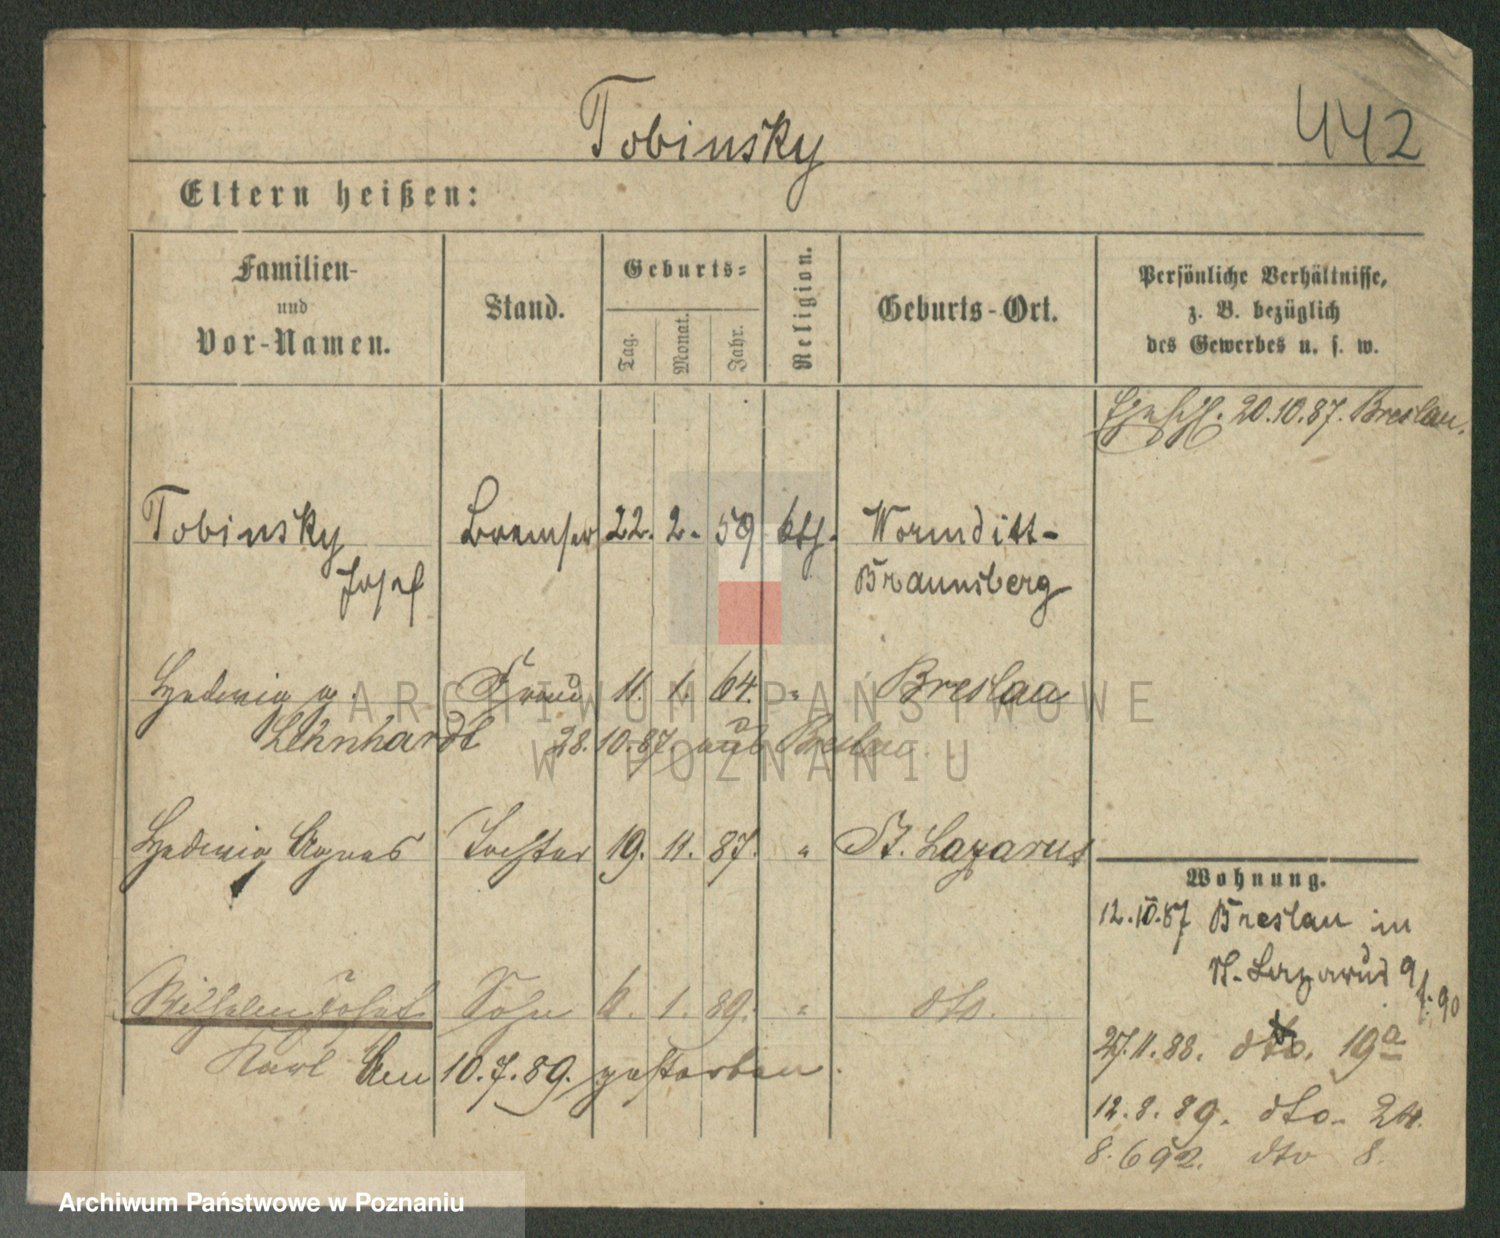 Tobinsky
442
Eltern heißen:
Familien-
und
Vor-Namen.
Stand.
Geburts-
Tag.
Monat.
Jahr.
Religion.
Geburts-Ort.
Persönliche Verhältnisse,
z. B. bezüglich
des Gewerbes u. s. w.
20.10.87. Breslau.
Tobinsky Bremser 22. 2. 59 kth. Wormditt-
Josef Braunsberg
Hedwig g. Frau 11. 1. 64. " Breslau
Lehnhardt 28.10.87. aus Breslau
Hedwig Agnes Tochter 19. 11. 87. " St. Lazarus
Wilhelm Josef Sohn 6. 1. 89. " dto.
Karl Am 10.7.89. gestorben.
Wohnung.
12.10.87 Breslau in
St. Lazarus 9
27.11.88. dto. 19a
12.8.89. dto. 24.
8.6 92. dto 8.
ARCHIWUM PAŃSTWOWE
W POZNANIU
Archiwum Państwowe w Poznaniu